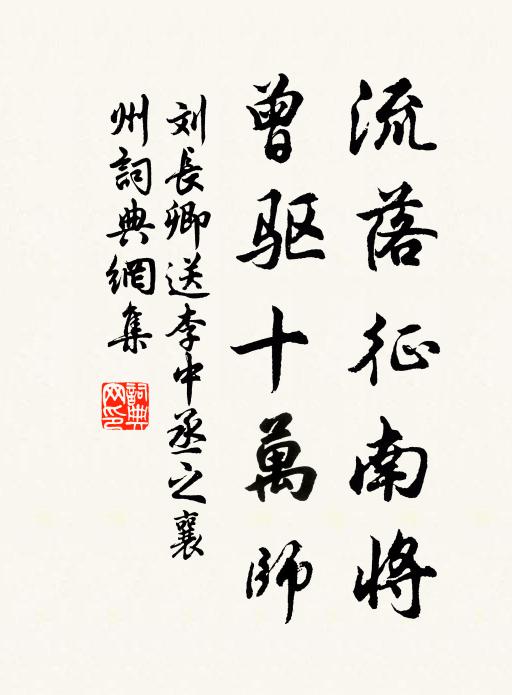 流落征南将
曾驱十萬師
刘長卿送李中丞之襄
州詞典網集
詞典網印